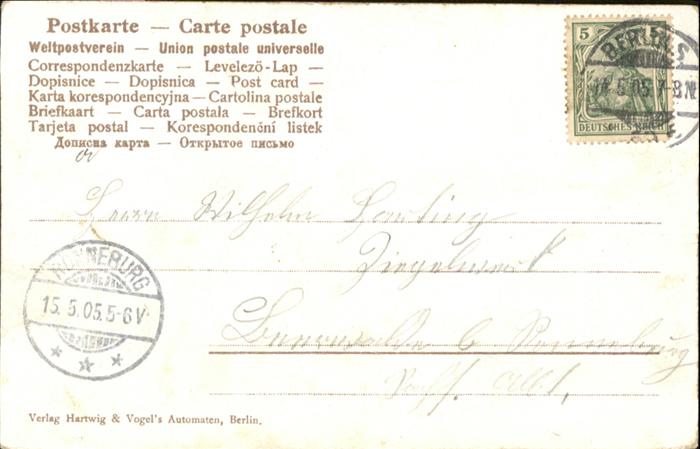 Postkarte — Carte postale
Weltpostverein — Union postale universelle
Correspondenzkarte — Levelező-Lap —
Dopisnice — Dopisnica — Post card —
Karta korespondencyjna — Cartolina postale
Briefkaart — Carta postala — Brefkort
Tarjeta postal — Korespondenční listek
Дописна карта — Открытое письмо
5
DEUTSCHES REICH
BERLIN S
14.5.05.7-8N.
Herrn Wilhelm Harting
Ziegelwerk
RONNEBURG
15.5.05.5-6V
* * *
Beerwalde b Ronneburg
Sachs. Altb.
Verlag Hartwig & Vogel's Automaten, Berlin.